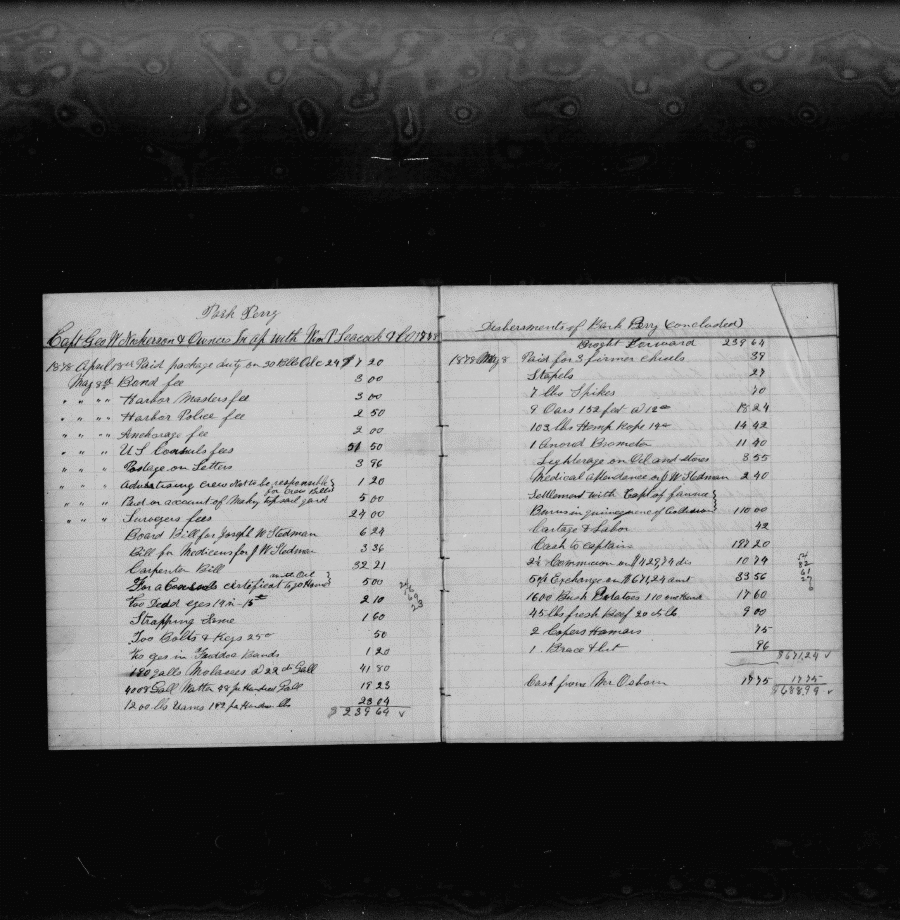 Bark Perry
Capt Geo W Nickerson & Owners In a/c with Wm P Leacock & Co 1878
1878 April 18th Paid package duty on 30 Bbls Oil c 24 $ 7 20
May 8th Bond fee 3 00
" " " Harbor Masters fee 3 00
" " " Harbor Police fee 2 50
" " " Anchorage fee 2 00
" " " U S Consuls fees 51 50
" " " Postage on Letters 3 96
" " " Advertising crew not to be responsible for Crew Bills 1 20
" " " Paid on account of Making topsail yard 5 00
" " " Surveyors fees 24 00
Board Bill for Joseph W Stedman 6 24
Bill for Medicens for J W Stedman 3 36
Carpenter Bill 32 21
For a Consuls certificat to go Home with Oil 5 00
Too Dedd eyes 19 in 15ct 2 10
Strapping Same 1 60
Too Bolts & Kegs 25c 50
to eyes in Bands 1 20
180 galls Molasses @ 22 cts Gall 41 80
4008 Gall Watter 48 pr Hundred Gall 19 23
1200 lbs Yams 192 pr Hundre lbs 23 04
$ 239 64
Disbersments of Bark Perry (concluded)
Broght Forward 239 64
1878 May 8 Paid for 3 firmer chisels 39
Stapels 27
7 lbs Spikes 70
9 Oars 152 feet @ 12cts 18 24
103 lbs Hemp Rope 14cts 14 42
1 Anord Brometer 11 40
Lighterage on Oil and stores 8 55
Medical attendance on J W Stedman 2 40
Settlement with Capt of
Barns in quinquence of Collision 110 00
Cartage & Labor 42
Cash to Captain 187 20
2½ Commission on $429,74 cts 10 74
5 pr Exchange on $671,24 amt 33 56
1600 Bush Potatoes 110 17 60
45 lbs fresh Beef 20 cts lb 9 00
2 Copers Hamars 75
1 Brace & bit 96
$671,24
Cash from Mr Osborn 17 75 17 75
$688 99